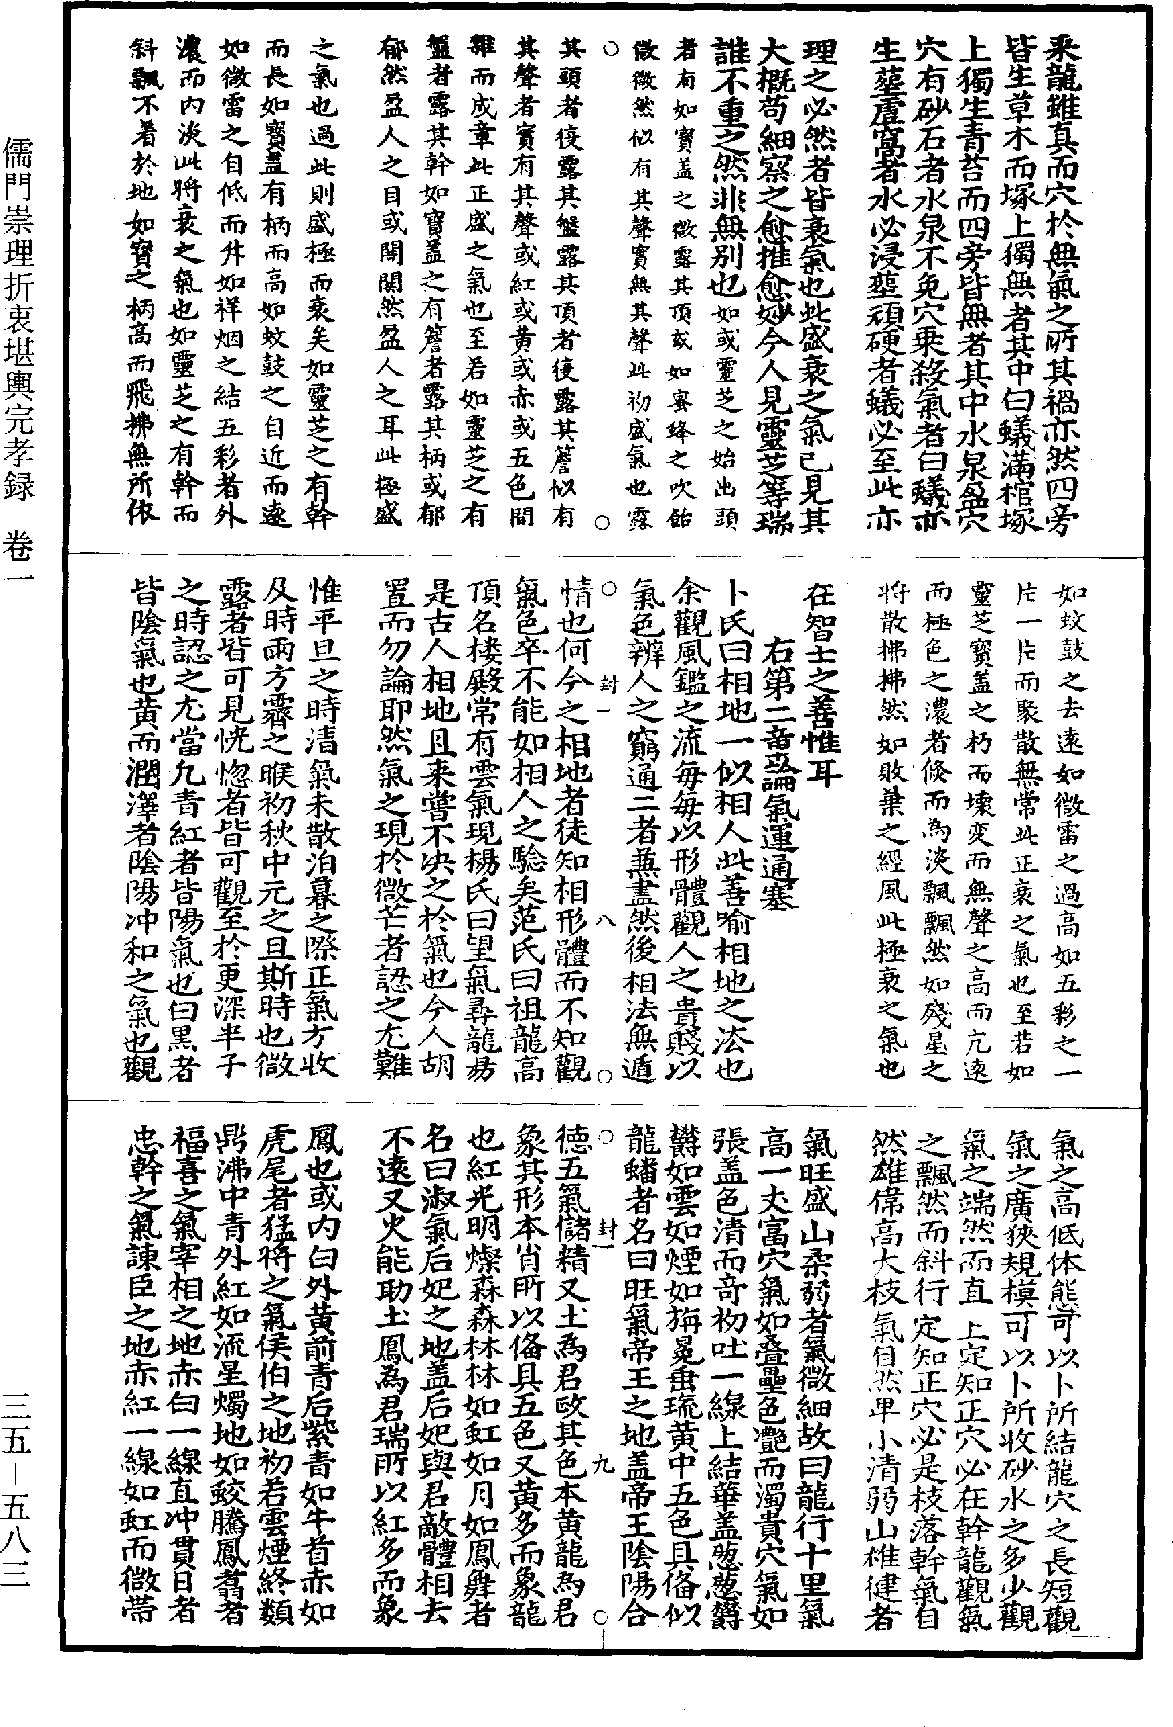 儒門崇理折衷堪輿完孝録　卷一
三五－五八三
乘龍雖真而穴於無氣之所其禍亦然四旁
皆生草木而塚上獨無者其中曰蟻滿棺塚
上獨生青苔而四旁皆無者其中水泉盈穴
穴有砂石者水泉不免穴乘殺氣者曰蟻亦
生塟虛窩者水必浸塟頑硬者蟻必至此亦
理之必然者皆衰氣也此盛衰之氣已見其
大概苟細察之愈推愈妙今人見靈芝等瑞
誰不重之然非無别也如或靈芝之始出頭
者有如寳盖之微露其頂或如蜜蜂之吹飴
微微然似有其聲實無其聲此初盛氣也露
其頭者後露其盤露其頂者後露其簷似有
其聲者實有其聲或紅或黄或赤或五色間
雜而成章此正盛之氣也至若如靈芝之有
盤者露其幹如寳盖之有簷者露其柄或郁
郁然盈人之目或閙閙然盈人之耳此極盛
之氣也過此則盛極而衰矣如靈芝之有幹
而長如寳盖有柄而高如蚊鼓之自近而遠
如微雷之自低而升如祥烟之結五彩者外
濃而内淡此將衰之氣也如靈芝之有幹而
斜飄不着於地如寳之柄高而飛拂無所依
如蚊鼓之去遠如微雷之過高如五彩之一
片一片而聚散無常此正衰之氣也至若如
靈芝寳盖之朽而壊变而無聲之高而亢遠
而極色之濃者倏而為淡飄飄然如殘星之
將散拂拂然如敗葉之經風此極衰之氣也
在智士之善惟耳
右第二章論氣運通塞
卜氏曰相地一似相人此善喻相地之法也
余觀風鑑之流毎毎以形體觀人之貴賤以
氣色辨人之窮通二者兼盡然後相法無遁
封一　八
情也何今之相地者徒知相形體而不知觀
氣色卒不能如相人之驗矣范氏曰祖龍高
頂名楼殿常有雲氣現楊氏曰望氣尋龍易
是古人相地且来嘗不决之於氣也今人胡
置而勿論耶然氣之現於微芒者認之尤難
惟平旦之時清氣未散泊暮之際正氣方收
及時雨方霽之睺初秋中元之旦斯時也微
露者皆可見恍惚者皆可觀至於更深半子
之時認之尤當九青紅者皆陽氣也曰黒者
皆陰氣也黄而潤澤者陰陽冲和之氣也觀
氣之高低体態可以卜所結龍穴之長短觀
氣之廣狹規模可以卜所收砂水之多少觀
氣之端然而直上定知正穴必在幹龍觀氣
之飄然而斜行定知正穴必是枝落幹氣自
然雄偉高大枝氣自然卑小清弱山雄健者
氣旺盛山柔弱者氣微細故曰龍行十里氣
高一丈富穴氣如叠壘色灔而濁貴穴氣如
張盖色清而竒初吐一線上結華盖葱葱欝
欝如雲如煙如旃冕垂琉黄中五色具俻似
龍蟠者名曰旺氣帝王之地盖帝王陰陽合
封一　九
徳五氣儲精又土為君故其色本黄龍為君
象其形本肖所以俻具五色又黄多而象龍
也紅光明燦森森林林如虹如月如鳳舞者
名曰淑氣后妃之地盖后妃與君敵體相去
不遠又火能助土鳳為君瑞所以紅多而象
鳳也或内白外黄前青后紫青如牛首赤如
虎尾者猛将之氣侯伯之地初若雲煙終類
鼎沸中青外紅如流星燭地如蛟騰鳳翥者
福喜之氣宰相之地赤白一線直冲貫日者
忠幹之氣諌臣之地赤紅一線如虹而微帯